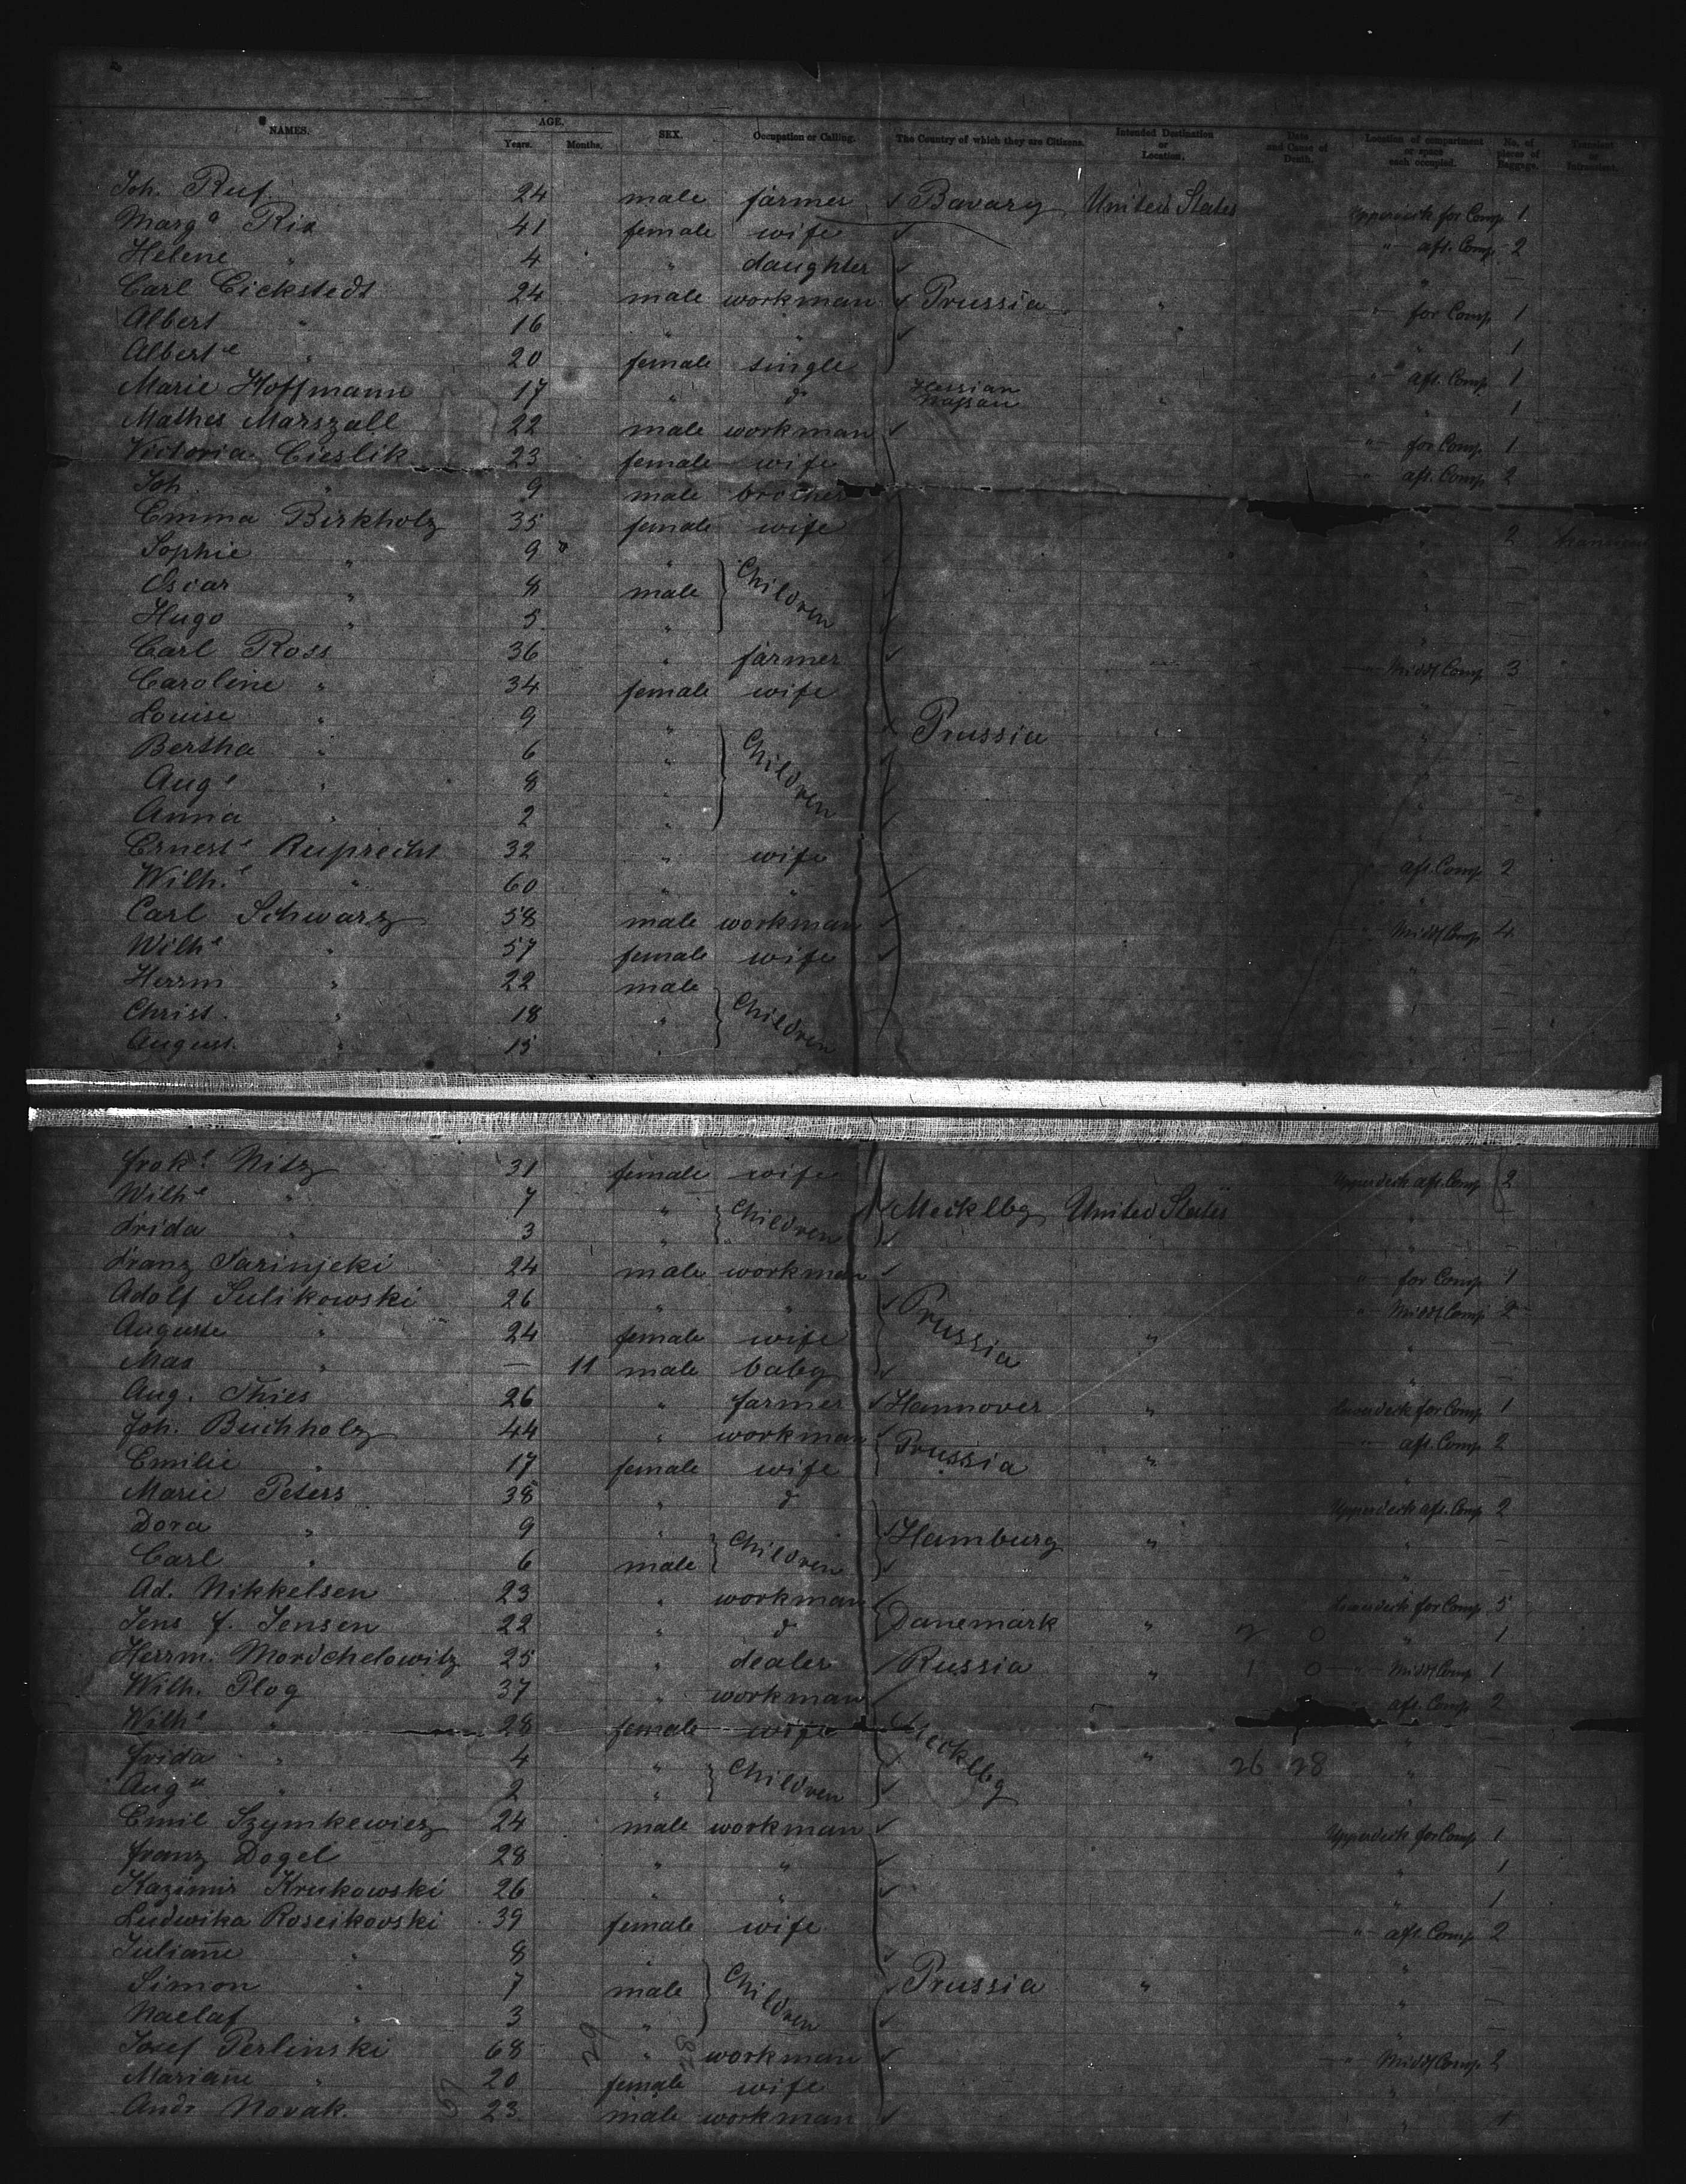 NAMES. AGE. Years. Months. SEX. Occupation or Calling. The Country of which they are Citizens. Intended Destination or Location. Date and Cause of Death. Location of compartment or space each occupied. No. of pieces of Baggage. Transient or Intransient.
Joh. Ruf 24 male farmer Bavary United States Upperdeck for Comp 1
Marg.a Rix 41 female wife " aft. Comp 2
Helene " 4 " daughter " —
Carl Eickstedt 24 male workman Prussia " " for Comp 1
Albert " 16 " " " " 1
Albert.e " 20 female single " aft. Comp 1
Marie Hoffmann 17 " do Hessian Nassau " " 1
Mathes Marszall 22 male workman " for Comp 1
Victoria Cieslik 23 female wife " aft. Comp 2
Joh " 9 male brother
Emma Birkholz 35 female wife " 2
Sophie " 9 " Children " —
Oscar " 8 male " —
Hugo " 5 " " —
Carl Ross 36 " farmer " Middl Comp 3
Caroline " 34 female wife " —
Louise " 9 " Prussia " " —
Bertha " 6 " Children " —
Aug.e " 8 " " —
Anna " 2 " " —
Ernest.e Ruprecht 32 " wife " aft. Comp 2
Wilh.e " 60 " " " —
Carl Schwarz 58 male workman " Middl Comp 4
Wilh.e " 57 female wife " —
Herrm " 22 male " —
Christ. " 18 " Children " —
August. " 15 " " —
Nitz 31 female wife Upperdeck aft. Comp 2
Wilh.e " 7 " Children Mecklbg United States " —
Frida " 3 " " —
Franz 24 male workman " for Comp 1
Adolf Sulikowski 26 " " Prussia " Middl Comp 2
Auguste " 24 female wife " " —
Max " — 11 male baby " —
Aug. Thies 26 " farmer Hannover " Lowerdeck for Comp 1
Joh. Buchholz 44 " workman Prussia " aft. Comp 2
Emilie " 17 female wife " " —
Marie Peters 38 " do Upperdeck aft. Comp 2
Dora " 9 " Children Hamburg " " —
Carl " 6 male " —
Ad. Nikkelsen 23 " workman Lowerdeck for Comp 5
Jens J. Jensen 22 " do Danemark " 2 0 " 1
Herrm. Mordchelowitz 25 " dealer Russia " 1 0 " Middl Comp 1
Wilh. Plog 37 " workman aft. Comp 2
Wilh.e " 28 female wife Mecklbg " —
Frida " 4 " Children " 26 28 " —
Aug.u " 2 " " —
Emil Szymkewicz 24 male workman Upperdeck for Comp 1
Franz Dogel 28 " " " 1
Kazimir Krukowski 26 " " " 1
Ludwika Roseikovski 39 female wife " aft. Comp 2
Julianne " 8 " " —
Simon " 7 male Children Prussia " " —
3 " " —
Josef Perlinski 68 " workman " Middl Comp 2
Marianne " 20 female wife " —
Andr Novak. 23 male workman " 1